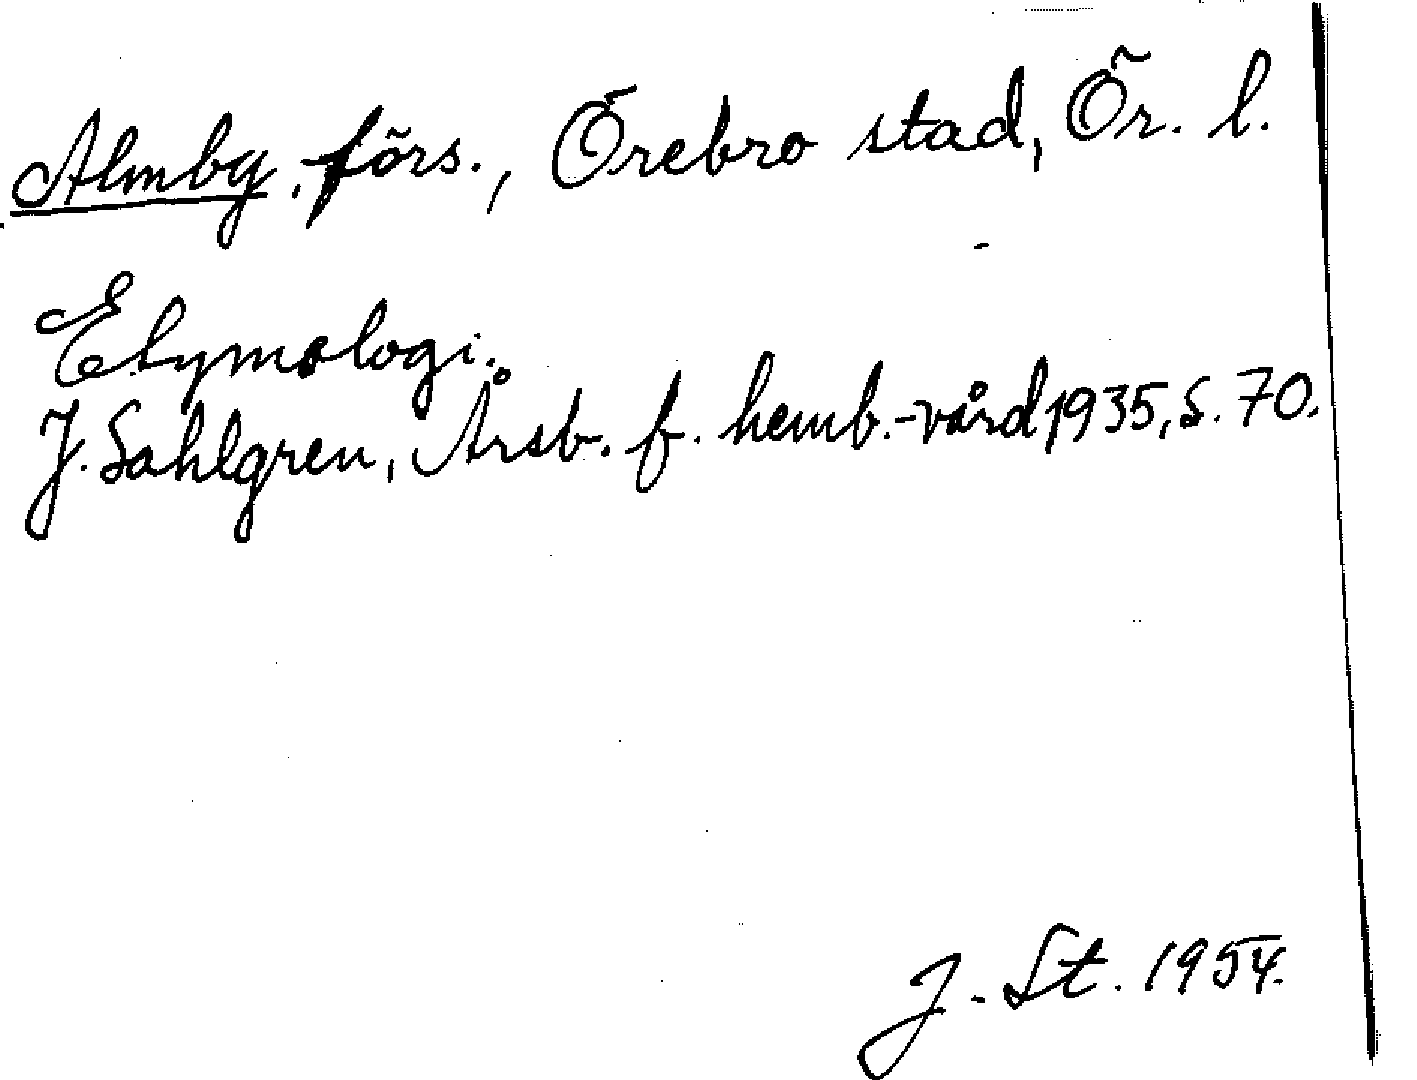 Almby, förs., Örebro stad, Ör. l.
Etymologi.
J. Sahlgren, Årsb. f. hemb.-vård 1935, s. 70.
J. St. 1954.